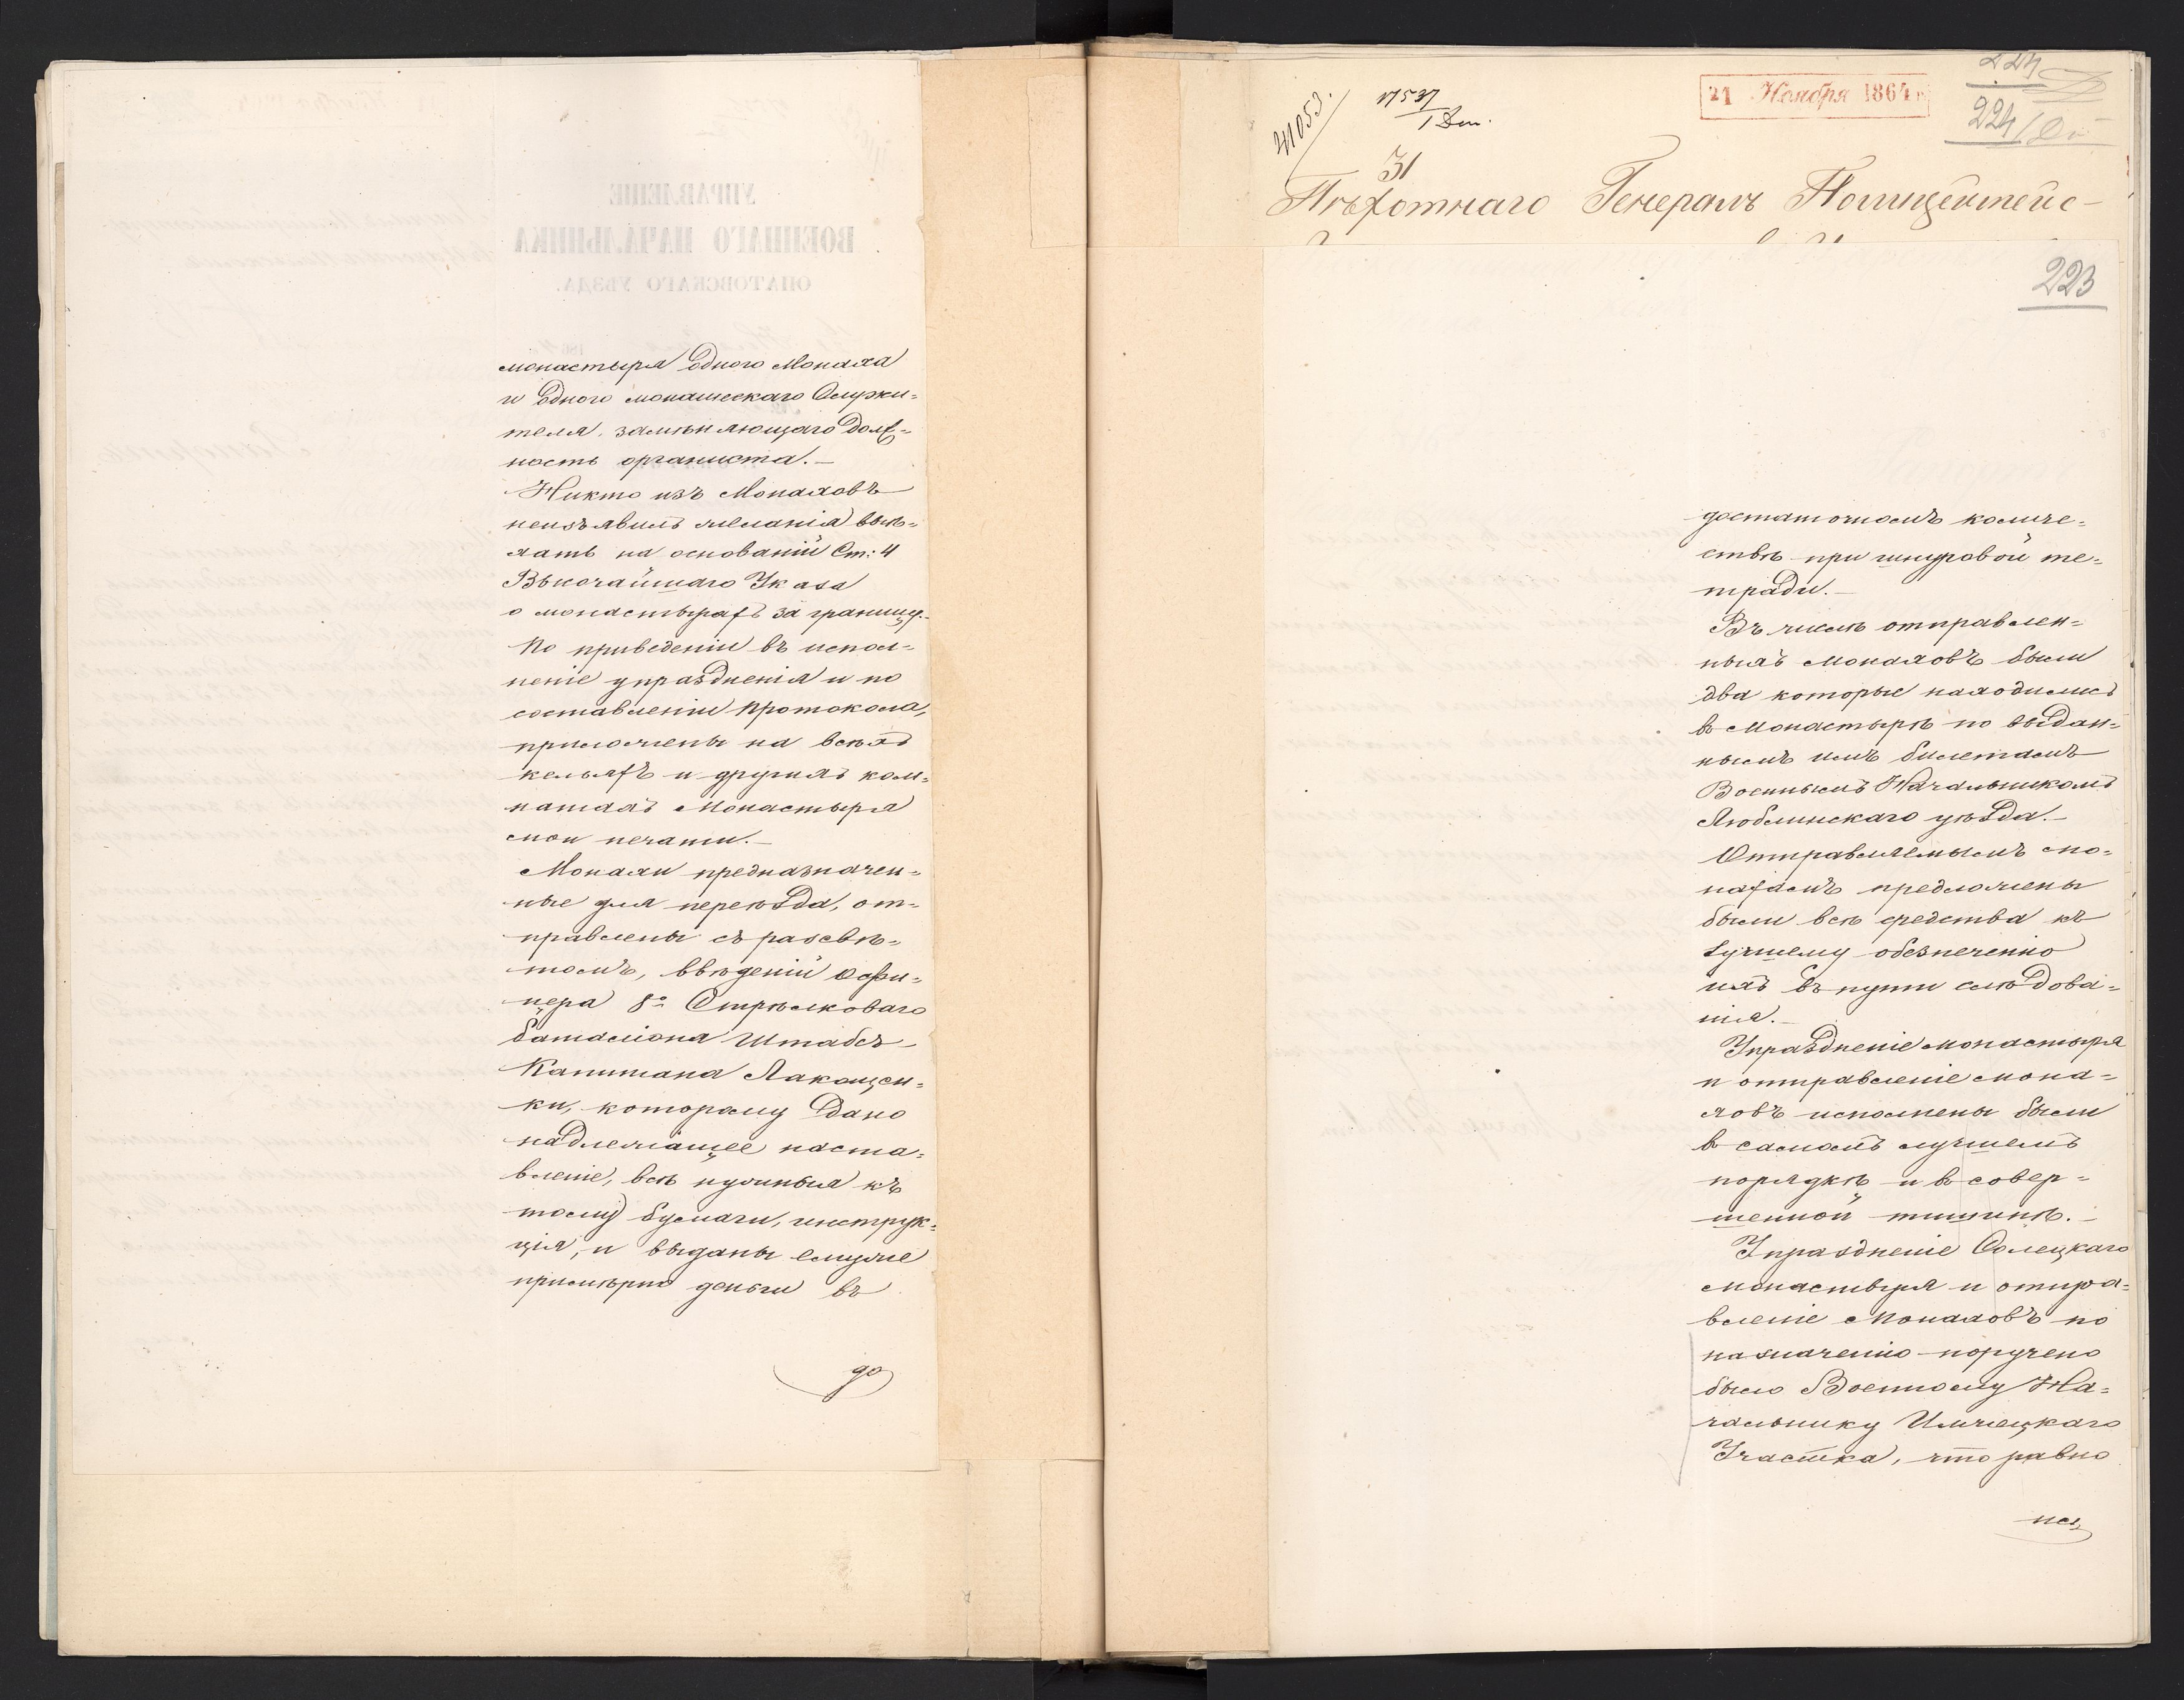 монастыря одного Монаха
и одного монашескаго Служи=
теля, замѣняющаго долж=
ность органиста.—
Никто изъ Монаховъ
неизъявилъ желанія выѣ=
хать на основаніи Ст: 4
Высочайшаго Указа
о монастыряхъ за границу.
По приведеніи въ испол=
неніе упраздненія и по
составленіи протокола,
приложены на всѣхъ
кельяхъ и другихъ ком=
натахъ Монастыря
мои печати.—
Монахи предназначен=
ные для переѣзда, от=
правлены съ разсвѣ=
томъ, ввѣденіи Офи=
цера 8го Стрѣлковаго
баталіона Штабсъ-
Капитана Лакощен=
ки, которому дано
надлежащее наста=
вленіе, всѣ нужныя къ
тому бумаги, инструк=
ція, и выданы емуже
примѣрно деньги въ
до
УПРАВЛЕНІЕ
ВОЕННАГО НАЧАЛЬНИКА
ОПАТОВСКАГО УѢЗДА.
21 Ноября 1864
224
17537
1 Деп.
31
Пѣхотнаго Генералъ Полицеймейс-
223
достаточномъ количе=
ствѣ при шнуровой те=
тради.—
Въ числѣ отправлен=
ныхъ Монаховъ были
два которые находились
въ Монастырѣ по выдан=
нымъ имъ билетамъ
Военнымъ Начальникомъ
Люблинскаго уѣзда.—
Отправляемымъ мо=
нахамъ предложены
были всѣ средства къ
лучшему обезпеченію
ихъ въ пути слѣдова=
нія.—
Упраздненіе монастыря
и отправленіе мона=
ховъ исполнены были
въ самомъ лучшемъ
порядкѣ и въ совер=
шенной тишинѣ.—
Упраздненіе Солецкаго
монастыря и отпра=
вленіе Монаховъ по
назначенію поручено
было Военному На=
чальнику Илжецкаго
Участка, что равно